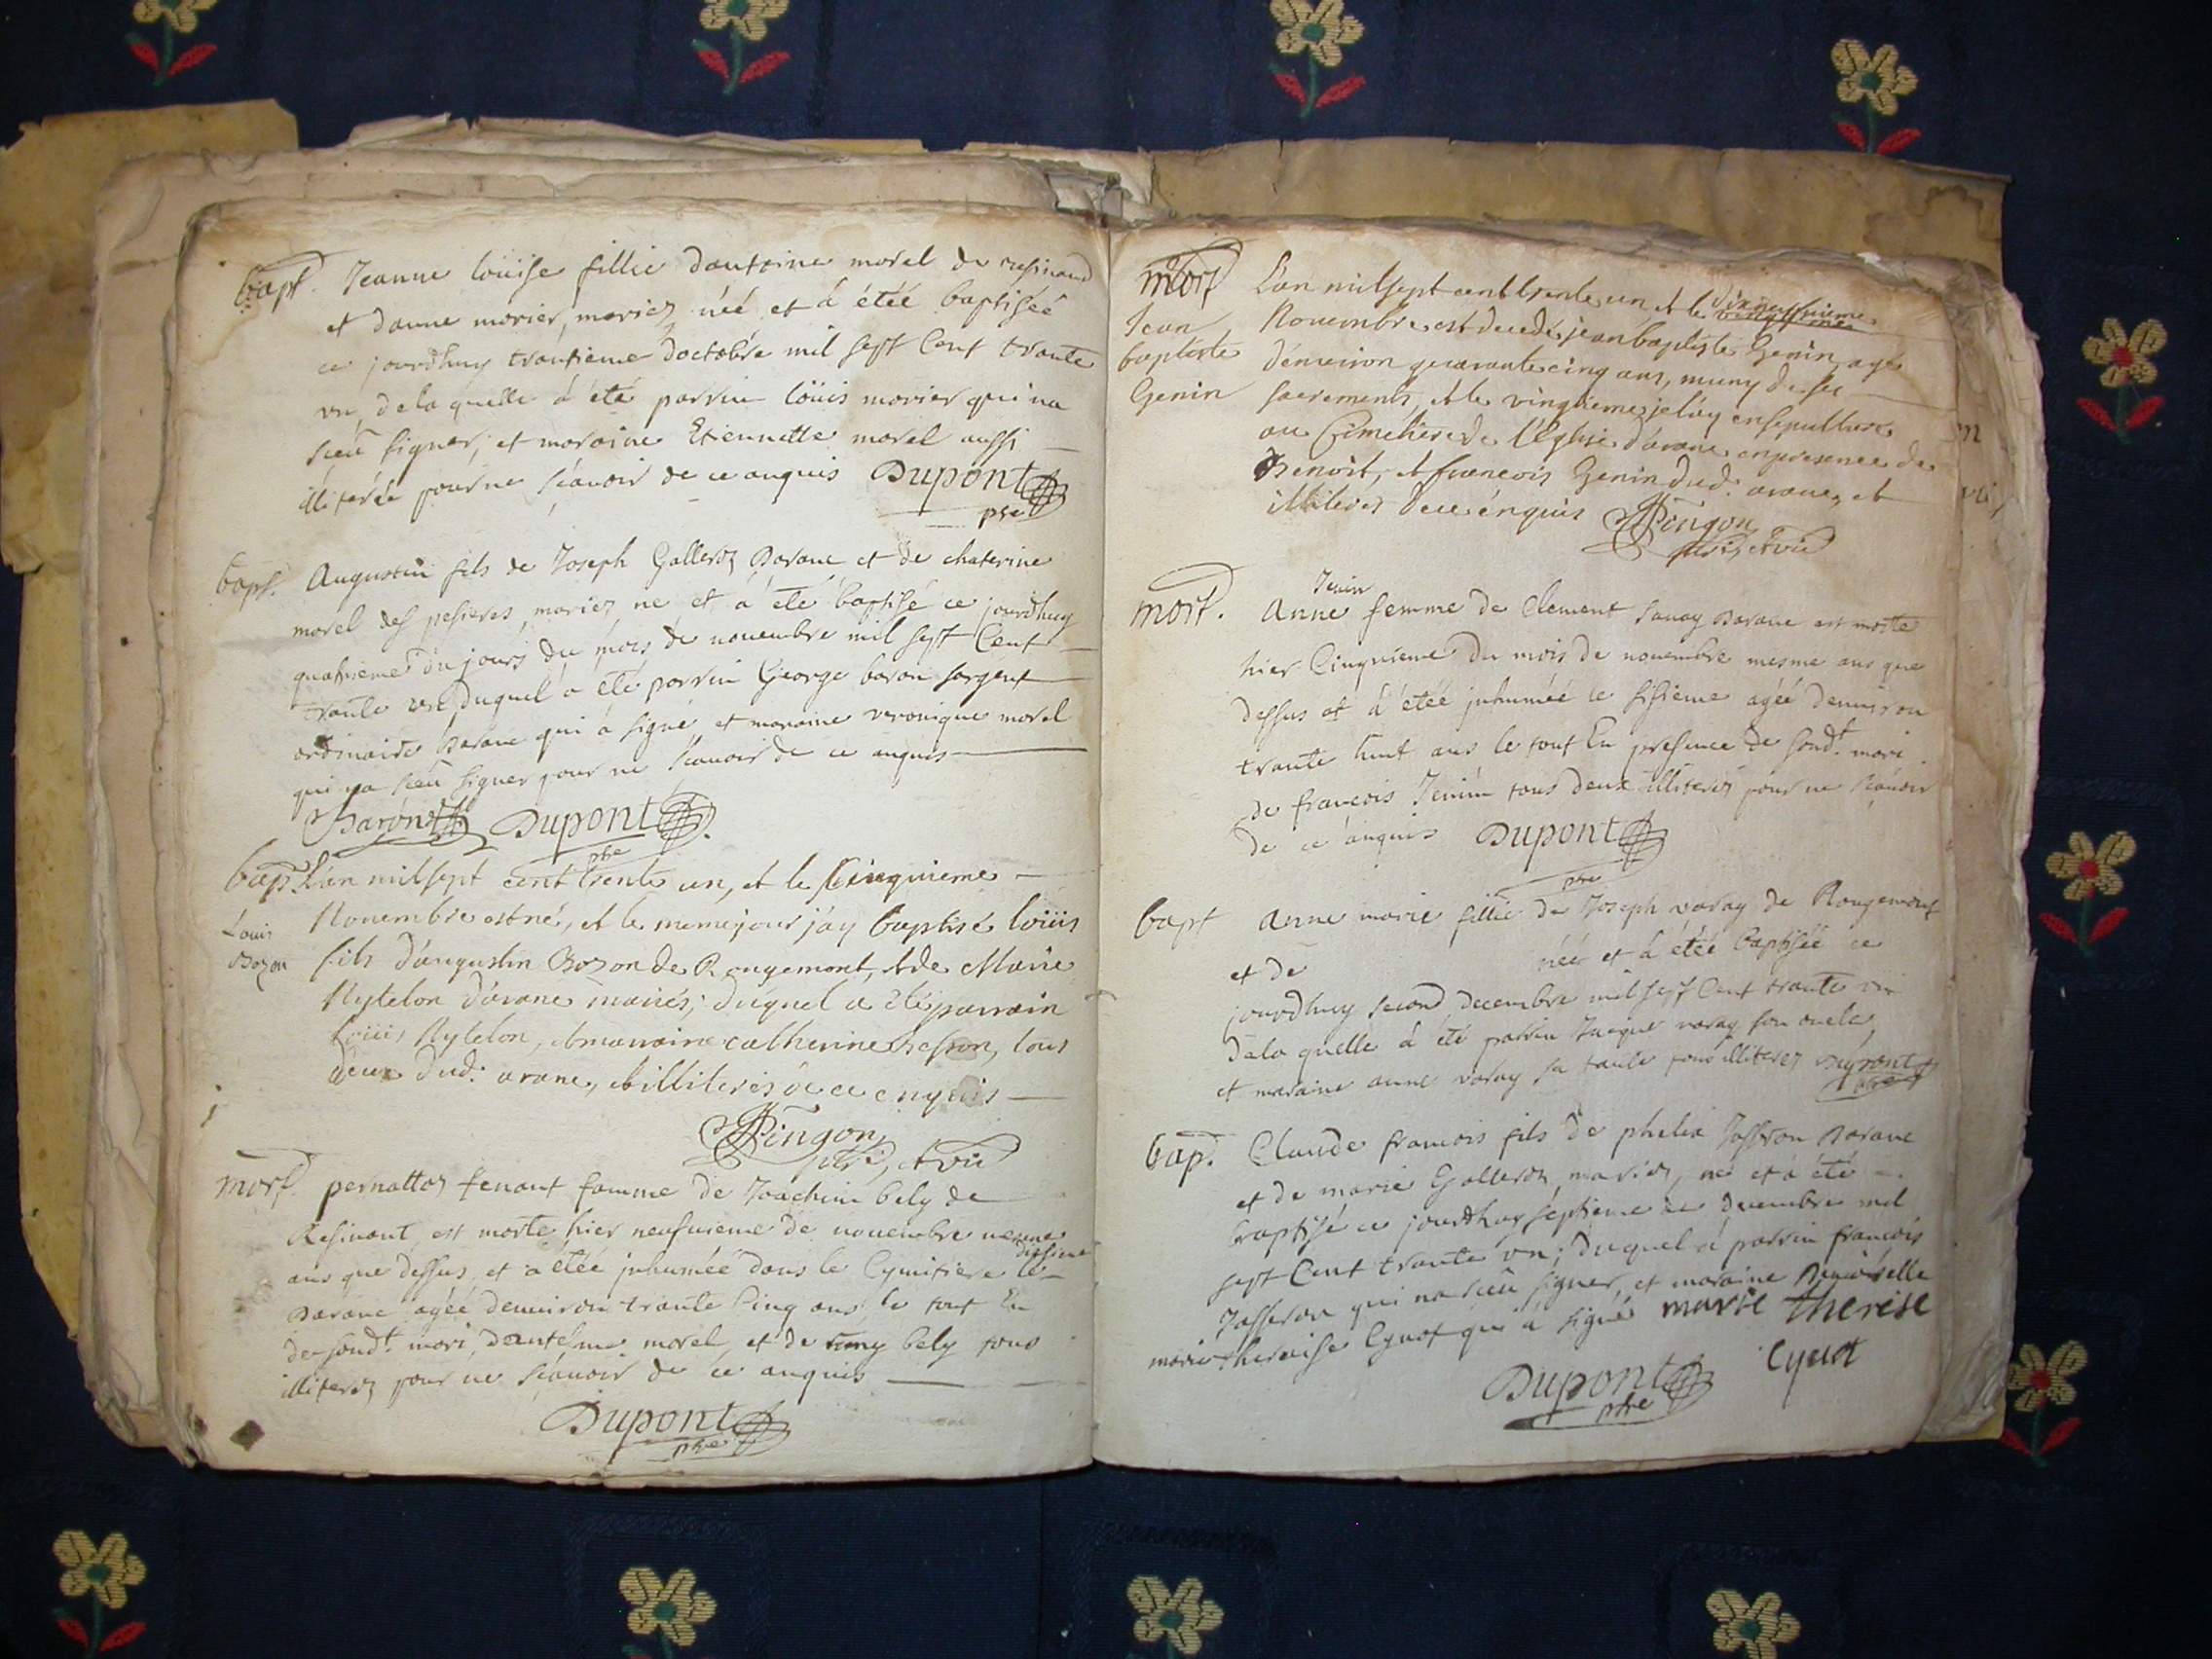 bapt. Jeanne loüise fillie dantoine morel de resinand
et danne morier, mariez néé et á étéé baptiséé
ce jourdhuy trantieme doctobre mil sept Cent trante
vn, dela quelle á été parrin loüis morier qui na
sceü signer, et maraine Etiennette morel aussi
illiterée pour ne sçauoir de ce anquis Dupont
pbre
bapt. Augustin fils de Joseph Gallerez Darane et de chaterine
morel des pesieres, mariez, ne et á été baptisé ce jourdhuy
quatrieme du jours du mois de nouembre mil sept Cent
trante vn, duquel á été parrin George baron sargent
ordinaire Darane qui á signé et maraine veronique morel
qui na sceü signer pour ne sçauoir de ce anquis
Baron Dupont
pbre
bapt. L'an mil sept cent trente un, et le Cinquieme
Nouembre est né, et le meme jour j'ay baptisé loüis
Louis
Bozon
fils d'augustin Bozon de Rougemont, et de Marie
Nytelon d'arane mariés; duquel a été parrain
loüis Nytelon, et marraine catherine Besson, tous
deux dud: arane, et illiterés de ce enquis
Pingon
mort. pernattaz tenant famme de Joachim bely de
Resinant, est morte hier neufuieme de nouembre mesme
ans que dessus et á étéé jnhuméé dans le Cymitiere le dixieme
Darane agéé denuiron trante Cinq ans le tout En
de sondt. mari, dantesme morel, et de tony bely tous
illiterez pour ne sçauoir de ce anquis
Dupont
pbre
mort L'an mil sept cent trente un et le dixneufuieme
Jean
baptiste
Genin
Nouembre est decedé jean baptiste Genin, agé
d'enuiron quarante cinq ans, muny de ses
sacrements, et le vingtieme je l'ay ensepulturé
au Cimetiere de l'Eglise d'arane, en presence de
Benoit, et francois Genin dud: arane, et
illiteres de ce enquis Pingon
mort. Jenin
Anne femme de Clement sauay Darane est morte
hier Cinquieme du mois de nouembre mesme ans que
dessus et á étéé jnhuméé le sisieme agéé denuiron
trante huit ans le tout En presence de sondt. mari
de francois Jenin tous deux illiterez pour ne sçauoir
de ce anquis Dupont
pbre
bapt Anne marie fillie de Joseph varay de Rougemont
et de néé et á étéé baptiséé ce
jourdhuy second decembre mil sept Cent trante vn
dela quelle á été parrin Jacque varay son oncle,
et maraine anne varay sa tante tous illiterez Dupont
pbre
bap. Claude francois fils de phelix Josseron Darane
et de marie Gallerez, mariez, né et á été
baptisé ce jourdhuy septieme de decembre mil
sept Cent trante vn; duquel á parrin francois
Josseron qui na sceü signer, et maraine Demoiselle
marie theraise Cynot qui á signé marie therese
Cynot
Dupont
pbre